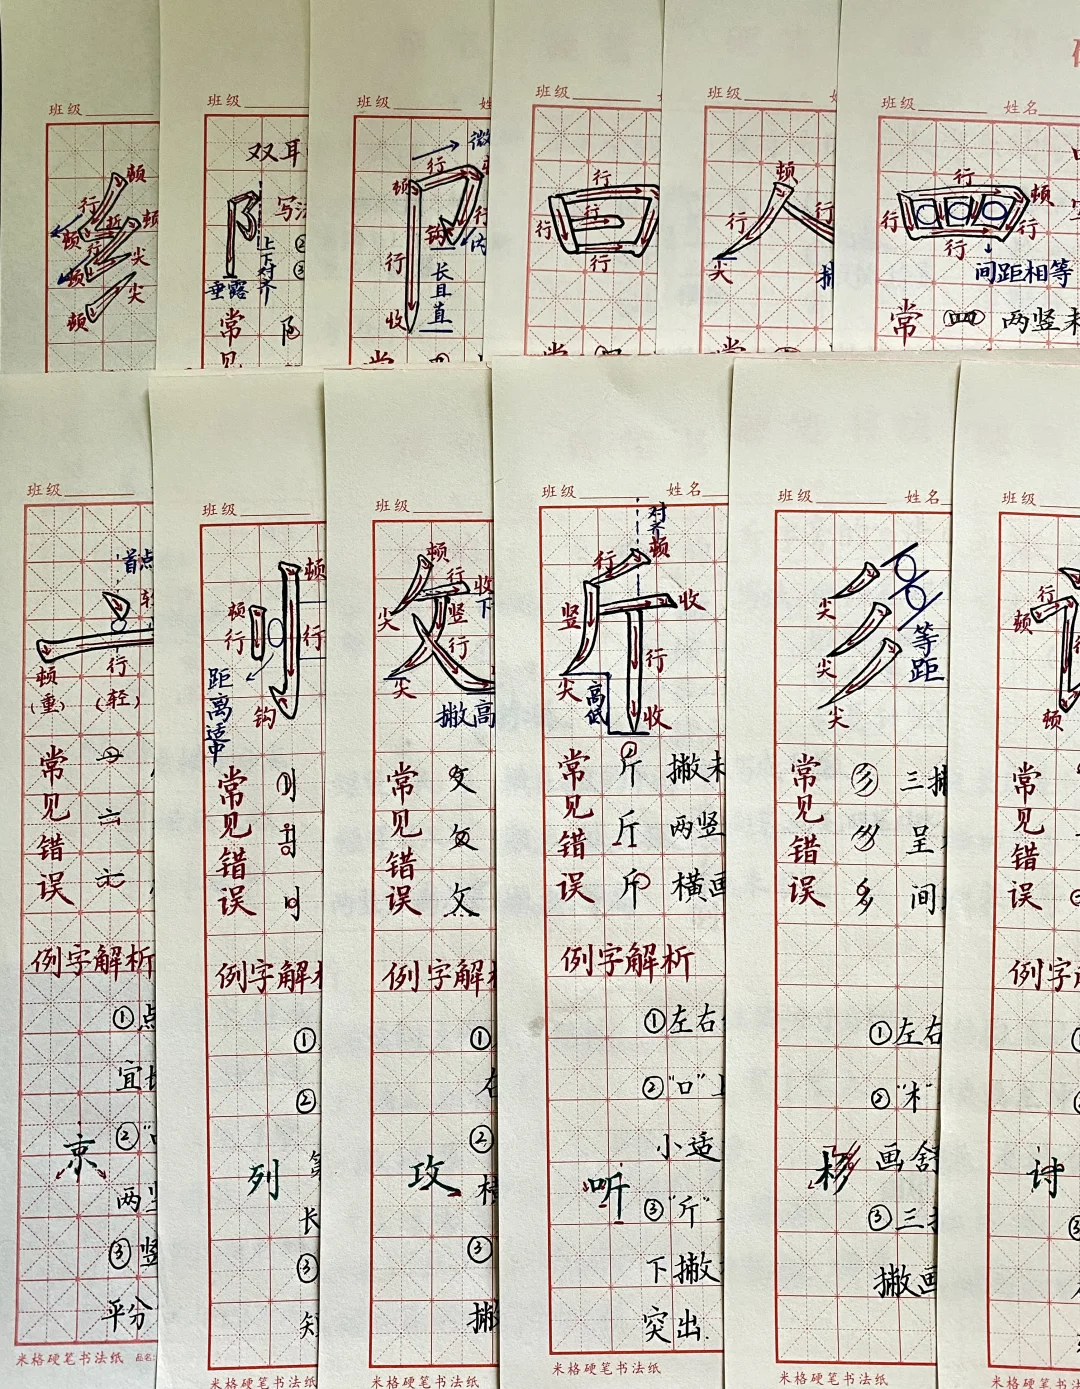 班级
顿
行
顿
折
顿
行
尖
顿
尖
顿
班级
双耳
写法
上下对齐
②
③
垂露
常见
班级
行
顿
行
钩
行
长且直
收
班级
行
行
行
行
班级
顿
行
行
尖
班级 姓名
行
顿
行
行
行
间距相等
常
两竖未
班级
首点
顿
(重)
行
(轻)
常见错误
例字解析
①点
宜
②
京
两竖
③竖
平分
米格硬笔书法纸
班级
顿
顿
行
行
距离适中
钩
常见错误
例字解
①
②
列
长
③
短
米格硬笔书法纸
班级
顿
行
收
尖
竖
下
行
尖
撇高
常见错误
例字解
①
右
②
攻
横
③
撇
米格硬笔书法纸
班级 姓名
对齐
行
顿
竖
收
行
尖
高低
收
常见错误
撇未
两竖
横画
例字解析
①左右
②"口"上
小适
听
③"斤"
下撇
突出.
米格硬笔书法纸
班级 姓名
尖
等距
尖
尖
常见错误
三撇
呈
间
①左右
②"木"
彬 画舒
③三撇
撇画
米格硬笔书法纸
班级
行
顿
行
顿
常见错误
例字
讨
米格硬笔书法纸